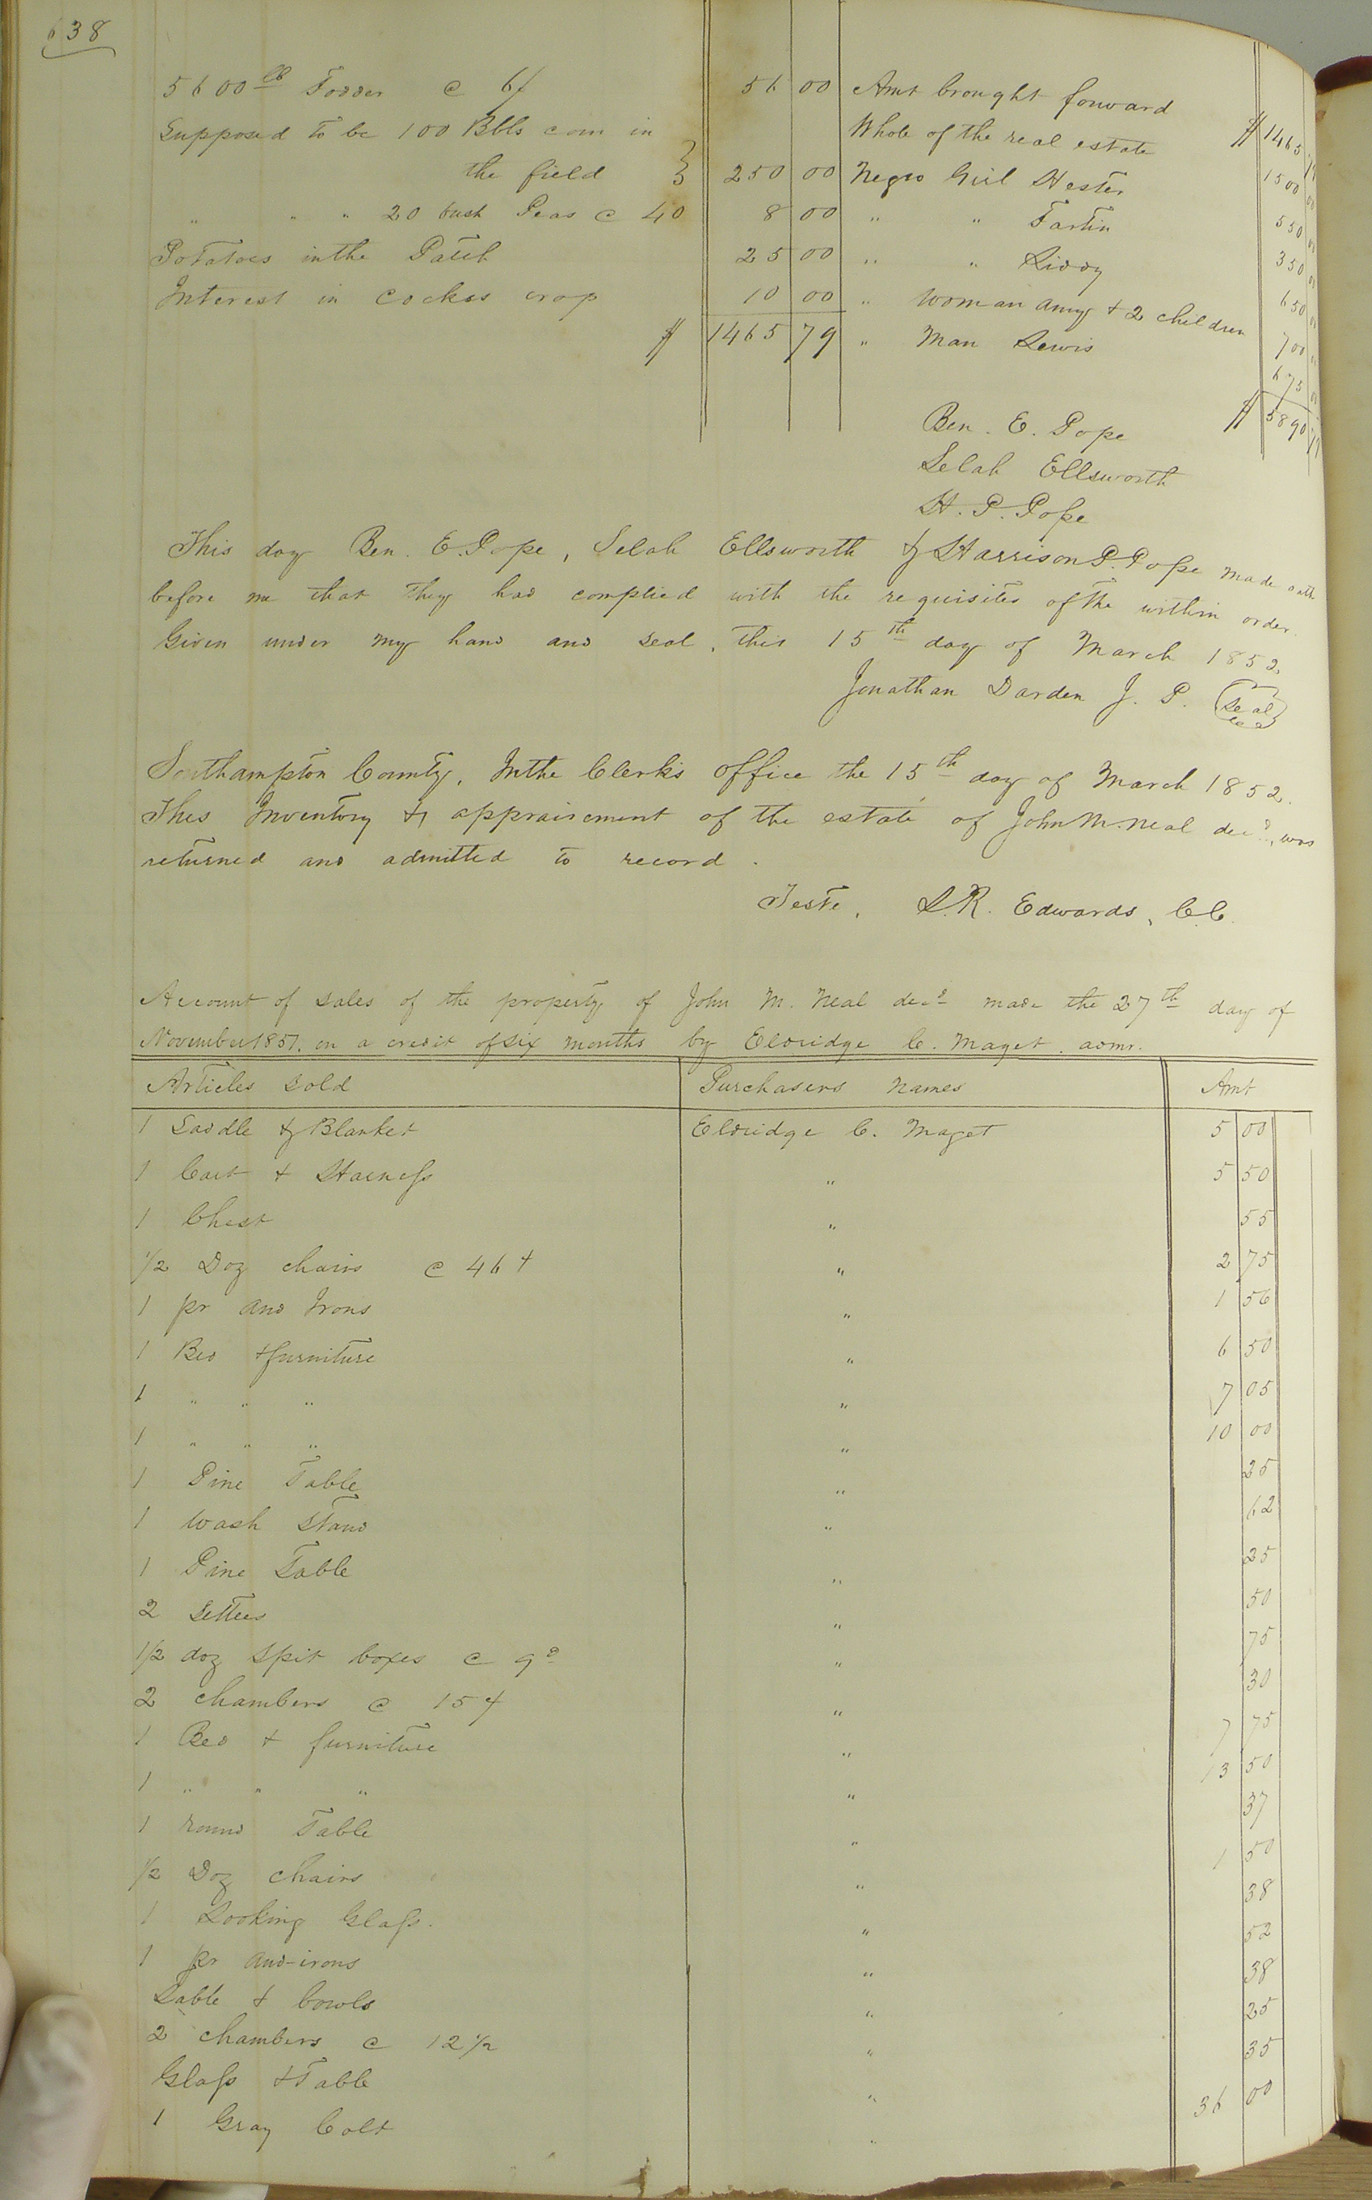 638
5600 lb Fodder @ 6/ 56 00
Supposed to be 100 Bbls corn in
the field } 250 00
" " " 20 bush Peas @ 40 8 00
Potatoes in the Patch 25 00
Interest in Cockes crop 10 00
$ 1465 79
Amt brought forward $ 1465 79
Whole of the real estate 1500 00
Negro Girl Hester 550 00
" " 350 00
" " Liddy 650 00
" Woman Amy & 2 children 700 00
" Man Lewis 675 00
$ 5890 79
Ben. E. Pope
Selah Ellsworth
H. P. Pope
This day Ben. E. Pope, Selah Ellsworth & Harrison P. Pope made oath
before me that they had complied with the requisites of the within order.
Given under my hand and seal, this 15th day of March 1852
Jonathan Darden J. P. (Seal)
Southampton County, In the Clerk's office the 15th day of March 1852.
This Inventory & appraisement of the estate of John M. Neal decd, was
returned and admitted to record.
Teste, L. R. Edwards, C.C.
Account of sales of the property of John M. Neal decd made the 27th day of
November 1851, on a credit of six months by Eldridge C. Maget, admr.
Articles Sold Purchasers Names Amt
1 Saddle & Blanket Eldridge C. Maget 5 00
1 Cart & Harness " 5 50
1 Chest " 55
1/2 Doz chairs @ 46 " 2 75
1 pr And Irons " 1 56
1 Bed & furniture " 6 50
1 " " " " 7 05
1 " " " " 10 00
1 Pine Table " 25
1 Wash Stand " 62
1 Pine Table " 25
2 Settees " 50
1/2 doz Spit boxes @ 9d " 75
2 Chambers @ 15¢ " 30
1 Bed & furniture " 7 75
1 " " " " 13 50
1 round Table " 37
1/2 Doz chairs " 1 50
1 Looking Glass. " 38
1 pr and-irons " 52
Table & bowls " 38
2 chambers @ 12 1/2 " 25
Glass & Table " 35
1 Gray Colt " 36 00